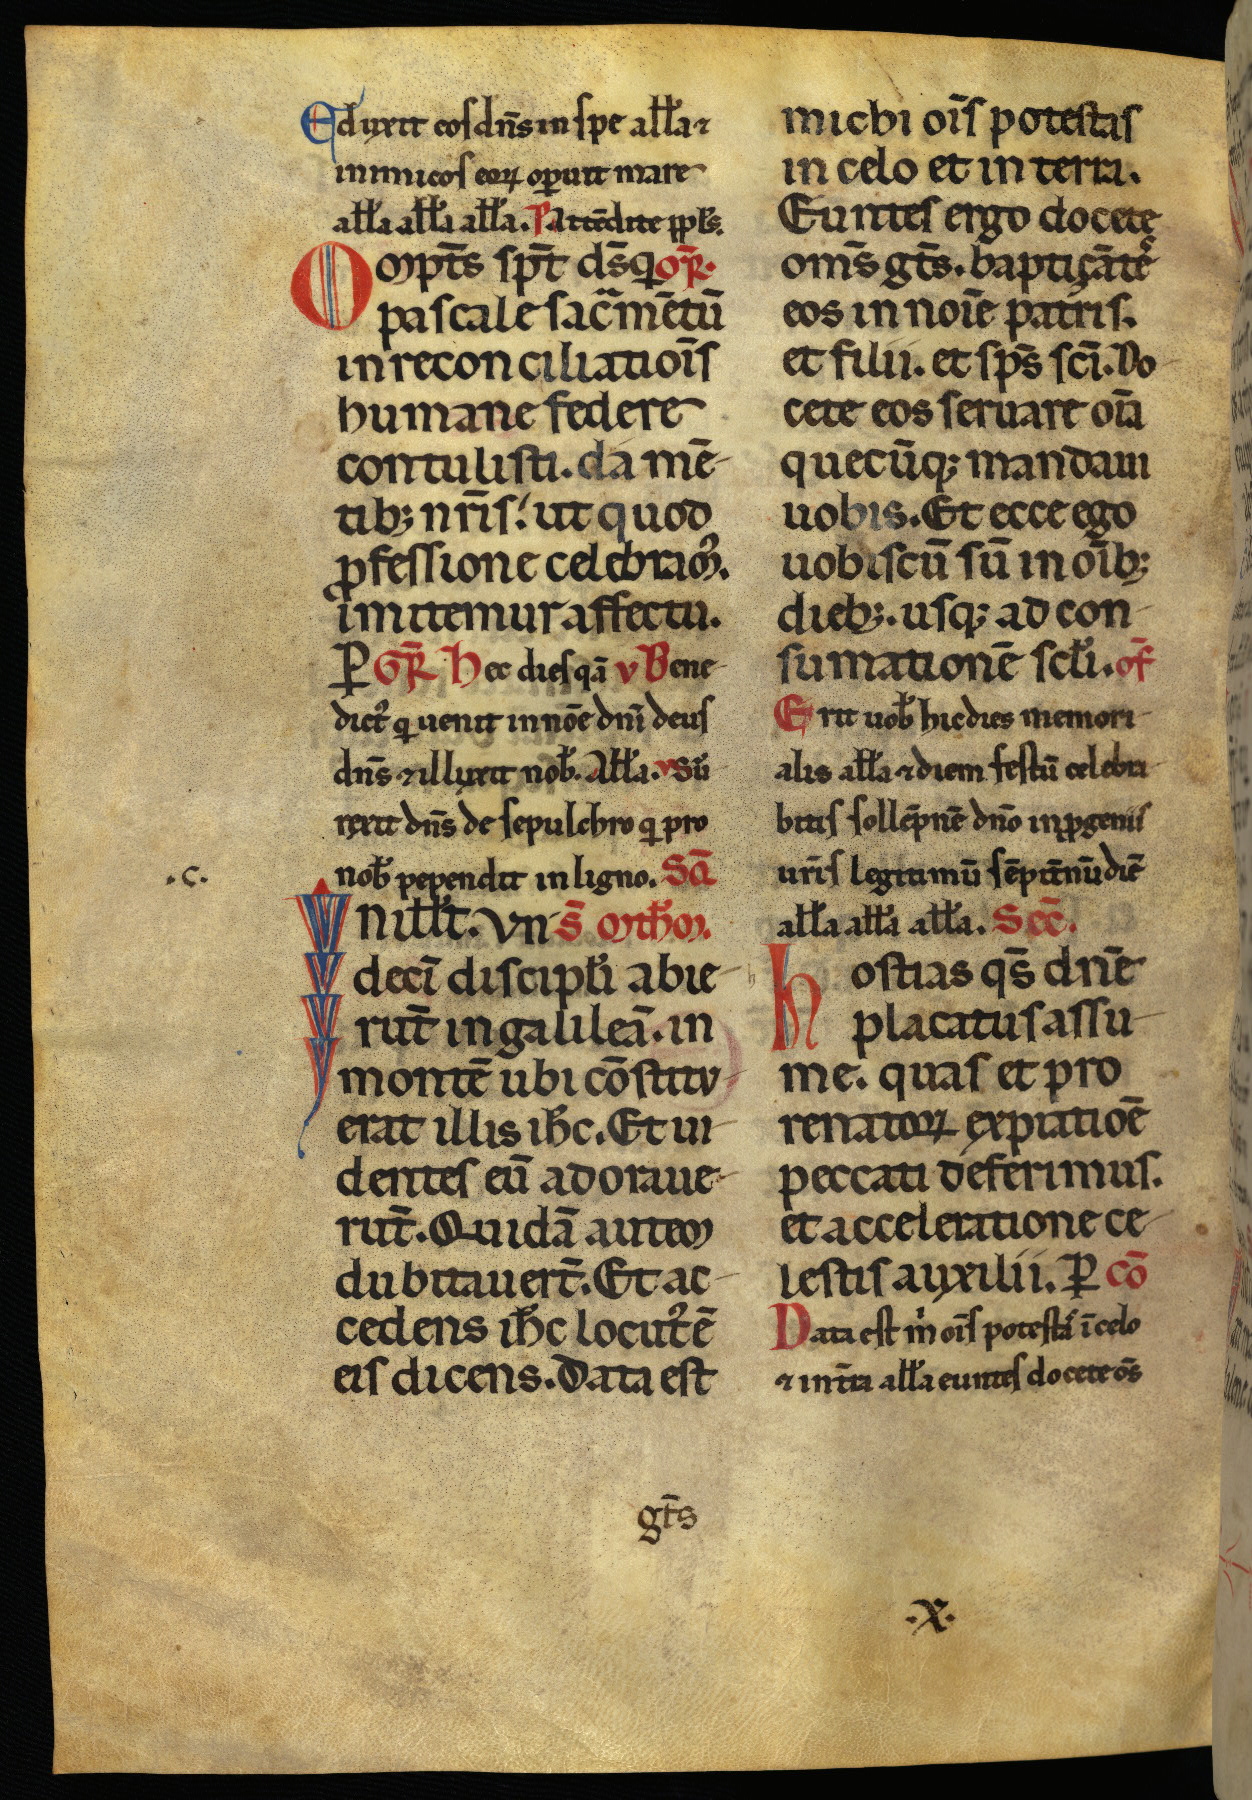 Eduxit eos dn̄s in spe all̄a ⁊
inimicos eoꝝ oꝑuit mare
all̄a all̄a all̄a. P̄s Attēdite ppl̄s.
Omp̄ts sp̄t ds̄ q̄ or̄.
pascale sac̄mētū
in reconciliatiōis
humane federe
contulisti. da mē
tibꝫ nr̄is. ut quod
ꝓfessione celebram᷒.
imitemur affectu.
P GR̄ Hec dies qā v Bene
dict᷒ q̄ uenit in nōe dn̄i deus
dn̄s ⁊ illuxit nob̄. All̄a. v Sur
rexit dn̄s de sepulchro q̄ pro
nob̄ pependit in ligno. Scd̄
.c.
In ill̄t. Vn s̄ Mth̄m.
decī discipl̄i abie
rūt in galileā. in
montē ubi cōstitu
erat illis ih̄c. Et ui
dentes eū adoraue
rūt. Quidā autem
dubitauert̄. Et ac
cedens ih̄c locut᷒ ē
eis dicens. Data est
michi oīs potestas
in celo et in terra.
Euntes ergo docete
oms̄ gt̄s. baptiçāte
eos in noīe patris.
et filii. et sp̄s scī. Do
cete eos seruare oīa
quecūqꝫ mandaui
uobis. Et ecce ego
uobiscū sū in oībꝫ
diebꝫ. usqꝫ ad con
sumationē scl̄i. of̄
Erit uob̄ hic dies memori
alis all̄a ⁊ diem festū celebra
bitis sollēpnē dn̄o in ꝓgenii
ur̄is legitimū sēpit̄nū diē
all̄a all̄a all̄a. Sec̄.
hostias qs̄ dn̄e
placatus assu
me. quas et pro
renatoꝝ expiatiōe
peccati deferimus.
et acceleratione ce
lestis auxilii. P cō
Data est m̄ oīs potestas ī celo
⁊ in tr̄a all̄a euntes docete oēs
gt̄s
.x.